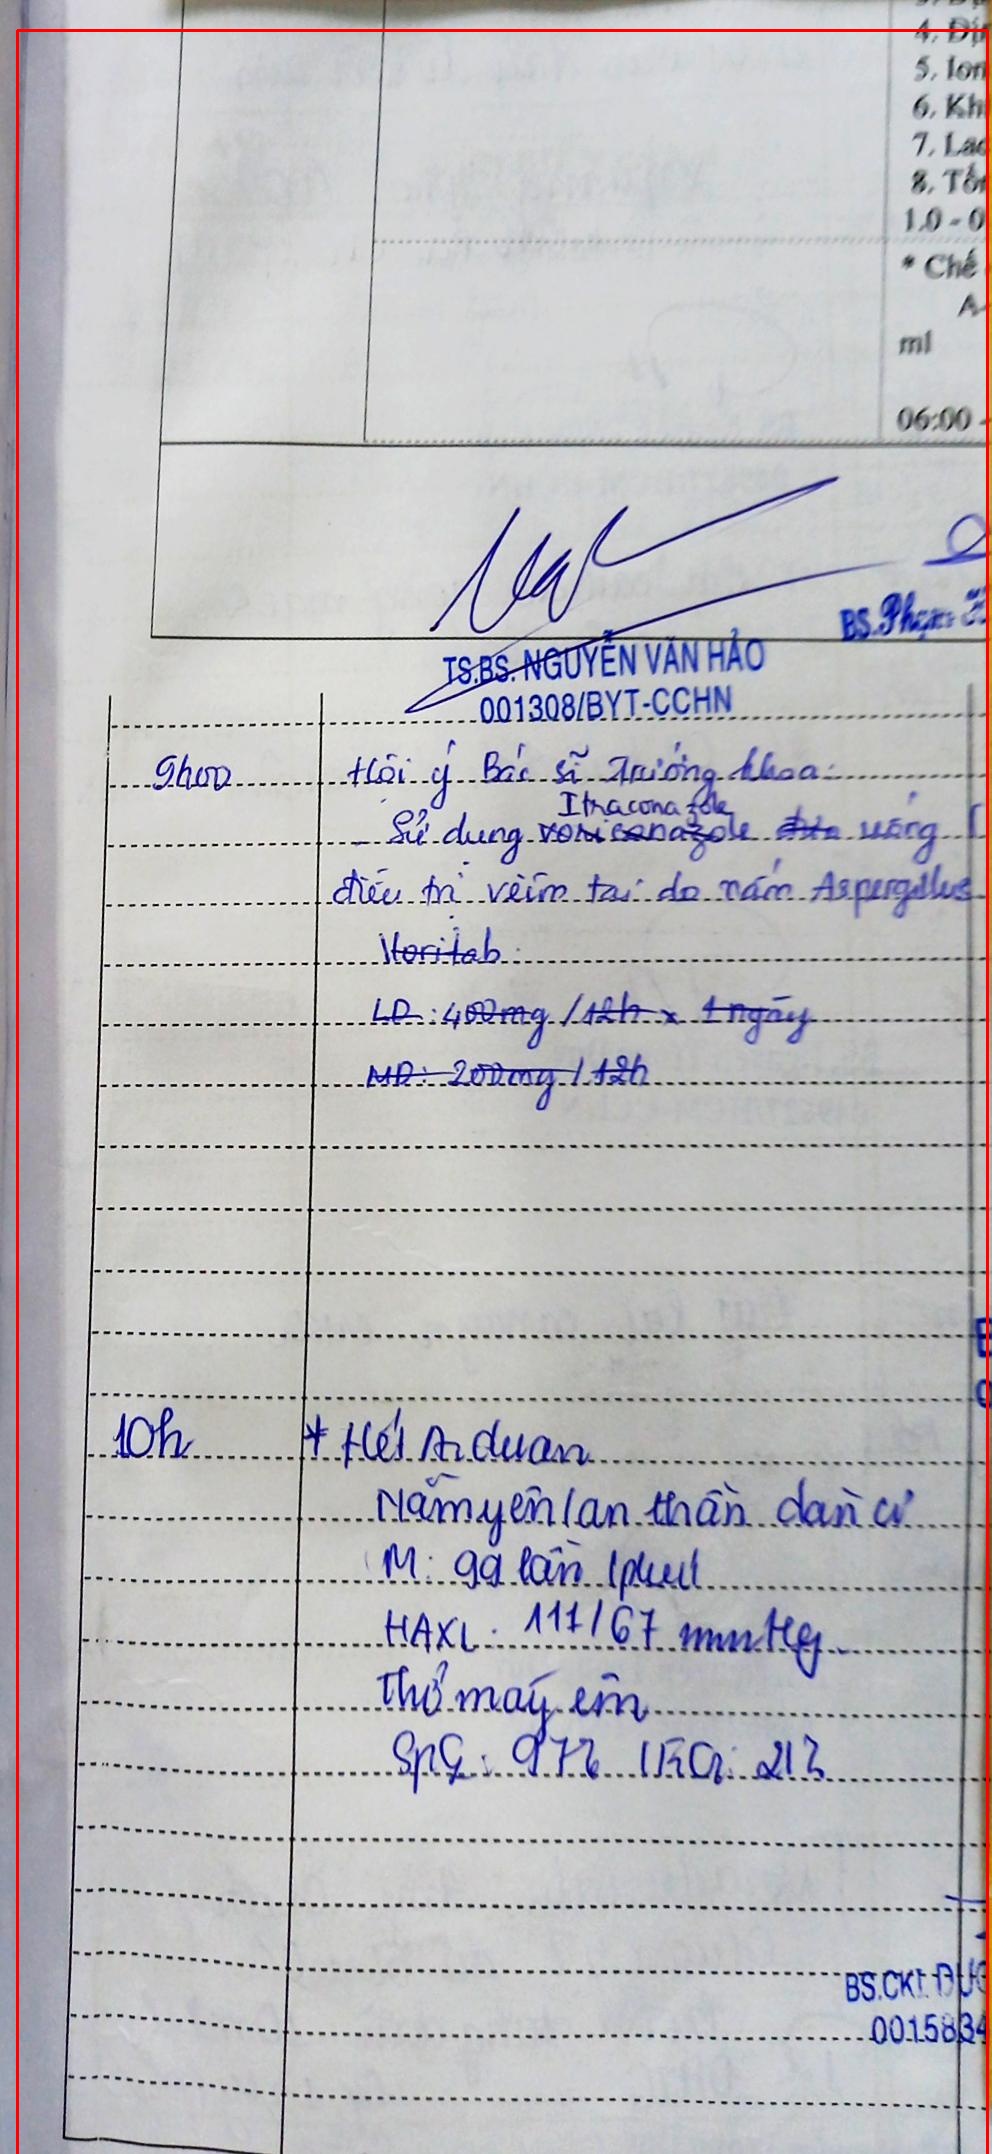 4. Địn
5. Ion
6. Kh
7. Lac
8. Tổn
1.0 - 0
* Chế
A-
ml
06:00 -
BS. Phạm
TS.BS. NGUYỄN VĂN HẢO
001308/BYT-CCHN
9h00 Hội ý Bác sĩ Trưởng khoa:
Itraconazole
- Sử dụng voriconazole uống
điều trị viêm tai do nấm Aspergillus
Voritab:
LD: 400mg / 12h x 1 ngày
MD: 200mg / 12h
10h * Hết Arduan
Nằm yên / an thần dãn cơ
M: 99 lần / phút
HAXL: 111/67 mmHg
Thở máy êm
SpO2: 97%
BS.CKI. ĐỨC
0015834